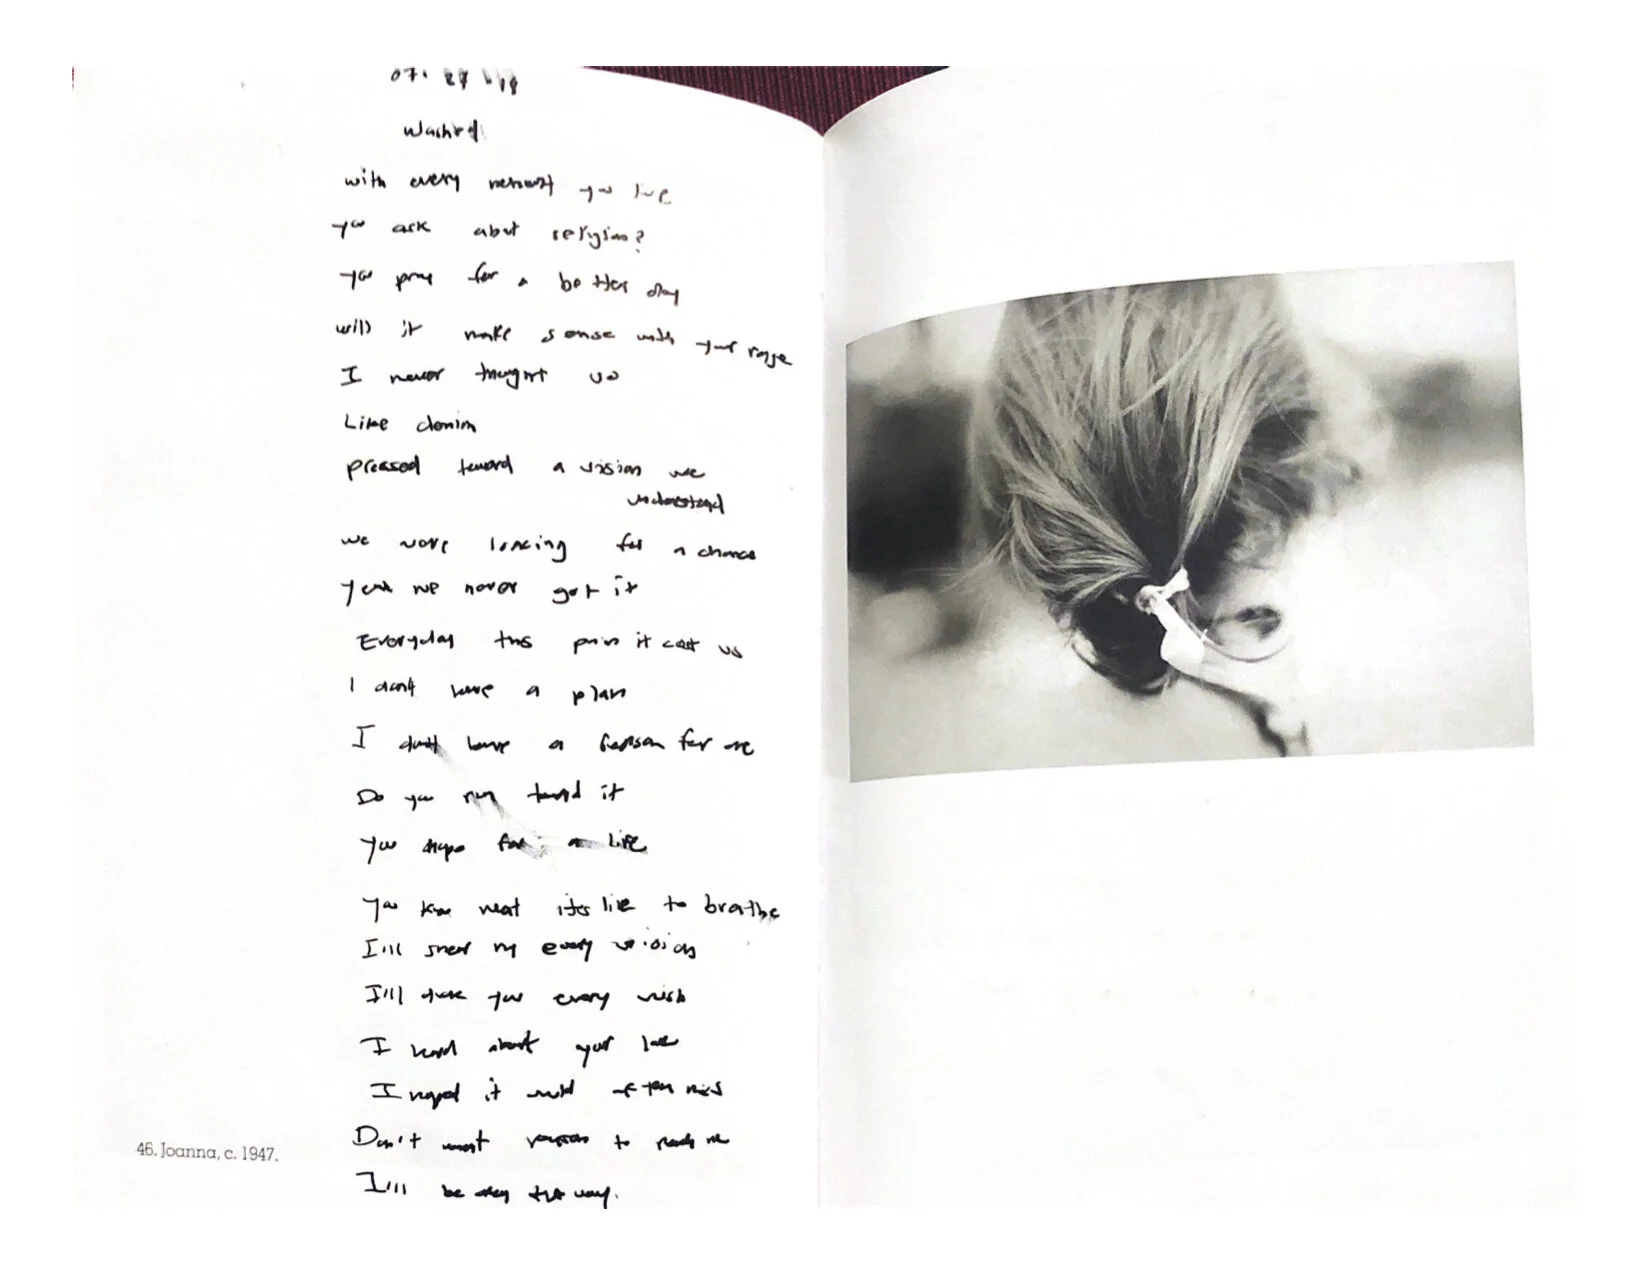 07. 27. 18
Washed
with every moment you live
you ask about religion?
you pray for a better day
will it make sense with your rage
I never thought so
Like denim
pressed toward a vision we
understand
we were looking for a chance
Yeah we never got it
Everyday this pain it cost us
I don't have a plan
I don't have a reason for me
Do you run toward it
you hope for a life
You know what it's like to breathe
I'll my every vision
I'll you every wish
I heard about your love
I it would
Don't want to reach me
I'll be okay that way.
46. Joanna, c. 1947.